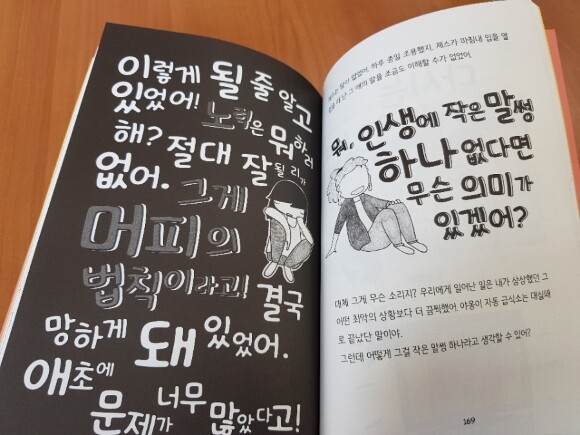 이렇게 될 줄 알고
있었어! 노력은 뭐하러
해? 절대 잘 될 리가
없어. 그게
머피의
법칙이라고! 결국
망하게 돼 있었어.
애초에 너무
문제가 많았다고!
말이 없었어. 하루 종일 조용했지. 제스가 마침내 입을 열
었을 때 난 그 애의 말을 조금도 이해할 수가 없었어.
뭐, 인생에 작은 말썽
하나 없다면
무슨 의미가
있겠어?
대체 그게 무슨 소리지? 우리에게 일어난 일은 내가 상상했던 그
어떤 최악의 상황보다 더 끔찍했어. 야옹이 자동 급식소는 대실패
로 끝났단 말이야.
그런데 어떻게 그걸 작은 말썽 하나라고 생각할 수 있어?
169